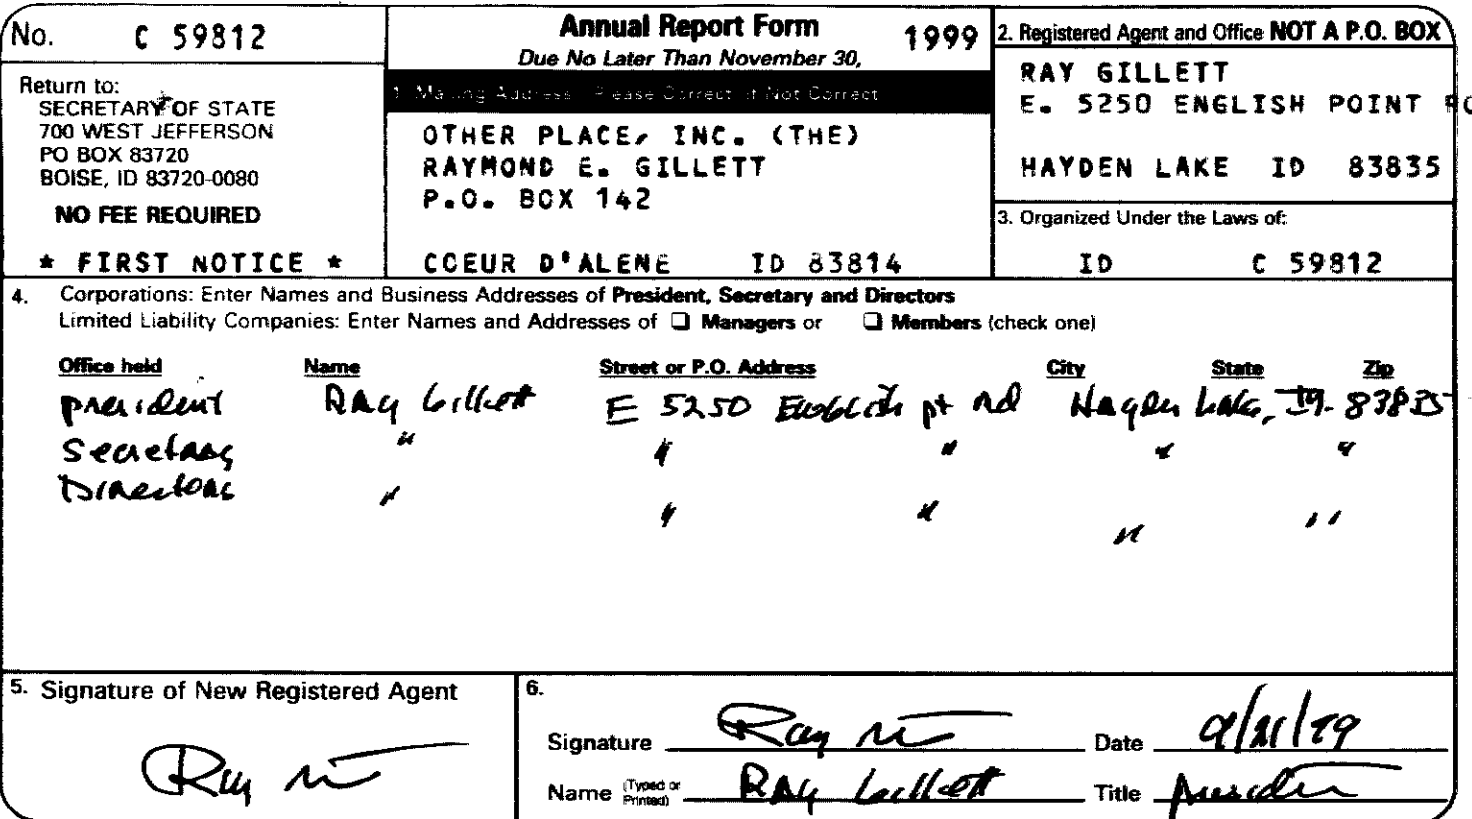 No. C 59812
Return to:
SECRETARY OF STATE
700 WEST JEFFERSON
PO BOX 83720
BOISE, ID 83720-0080
NO FEE REQUIRED
* FIRST NOTICE *
Annual Report Form 1999
Due No Later Than November 30,
1. Mailing Address Please Correct If Not Correct
OTHER PLACE, INC. (THE)
RAYMOND E. GILLETT
P.O. BOX 142
COEUR D'ALENE ID 83814
2. Registered Agent and Office NOT A P.O. BOX
RAY GILLETT
E. 5250 ENGLISH POINT
HAYDEN LAKE ID 83835
3. Organized Under the Laws of:
ID C 59812
4. Corporations: Enter Names and Business Addresses of President, Secretary and Directors
Limited Liability Companies: Enter Names and Addresses of ❑ Managers or ❑ Members (check one)
Office held Name Street or P.O. Address City State Zip
president Ray Gillett E 5250 English pt rd Hayden Lake, ID. 83835
Secretary " " " " "
Directors " " " " "
5. Signature of New Registered Agent
Ray
6.
Signature Ray Date
Name (Typed or Printed) Ray Gillett Title president